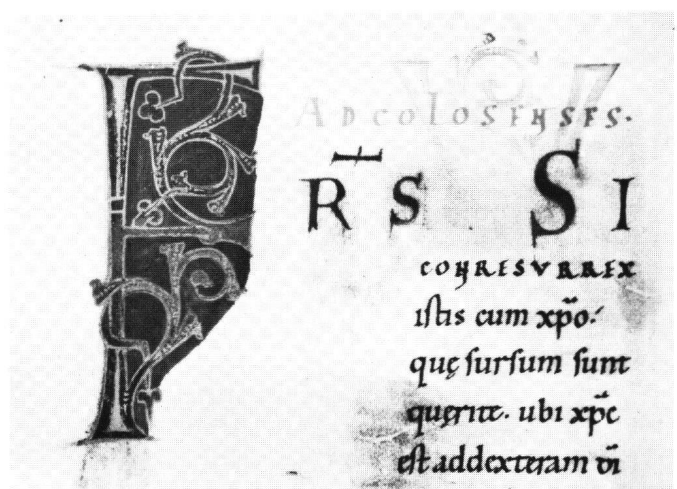 ADCOLOSENSES.
F R̄S SI
CONRESVRREX
istis cum xp̄o.
quę sursum sunt
quęrite. ubi xp̄c
est addexteram dī